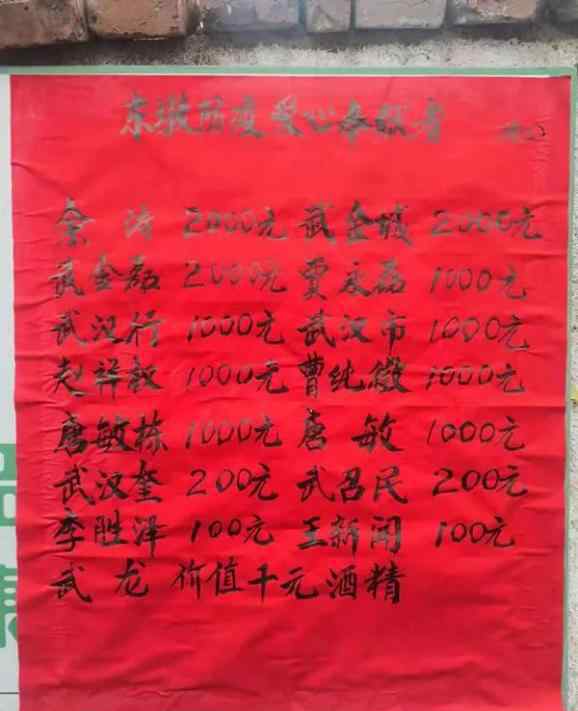 东墩防疫爱心奉献者
余涛 2000元 武金城 2000元
武金磊 2000元 贾永磊 1000元
武汉行 1000元 武汉市 1000元
赵祥敖 1000元 曹纯徽 1000元
唐敏栋 1000元 唐敏 1000元
武汉奎 200元 武召民 200元
李胜泽 100元 王新闻 100元
武龙 价值千元酒精